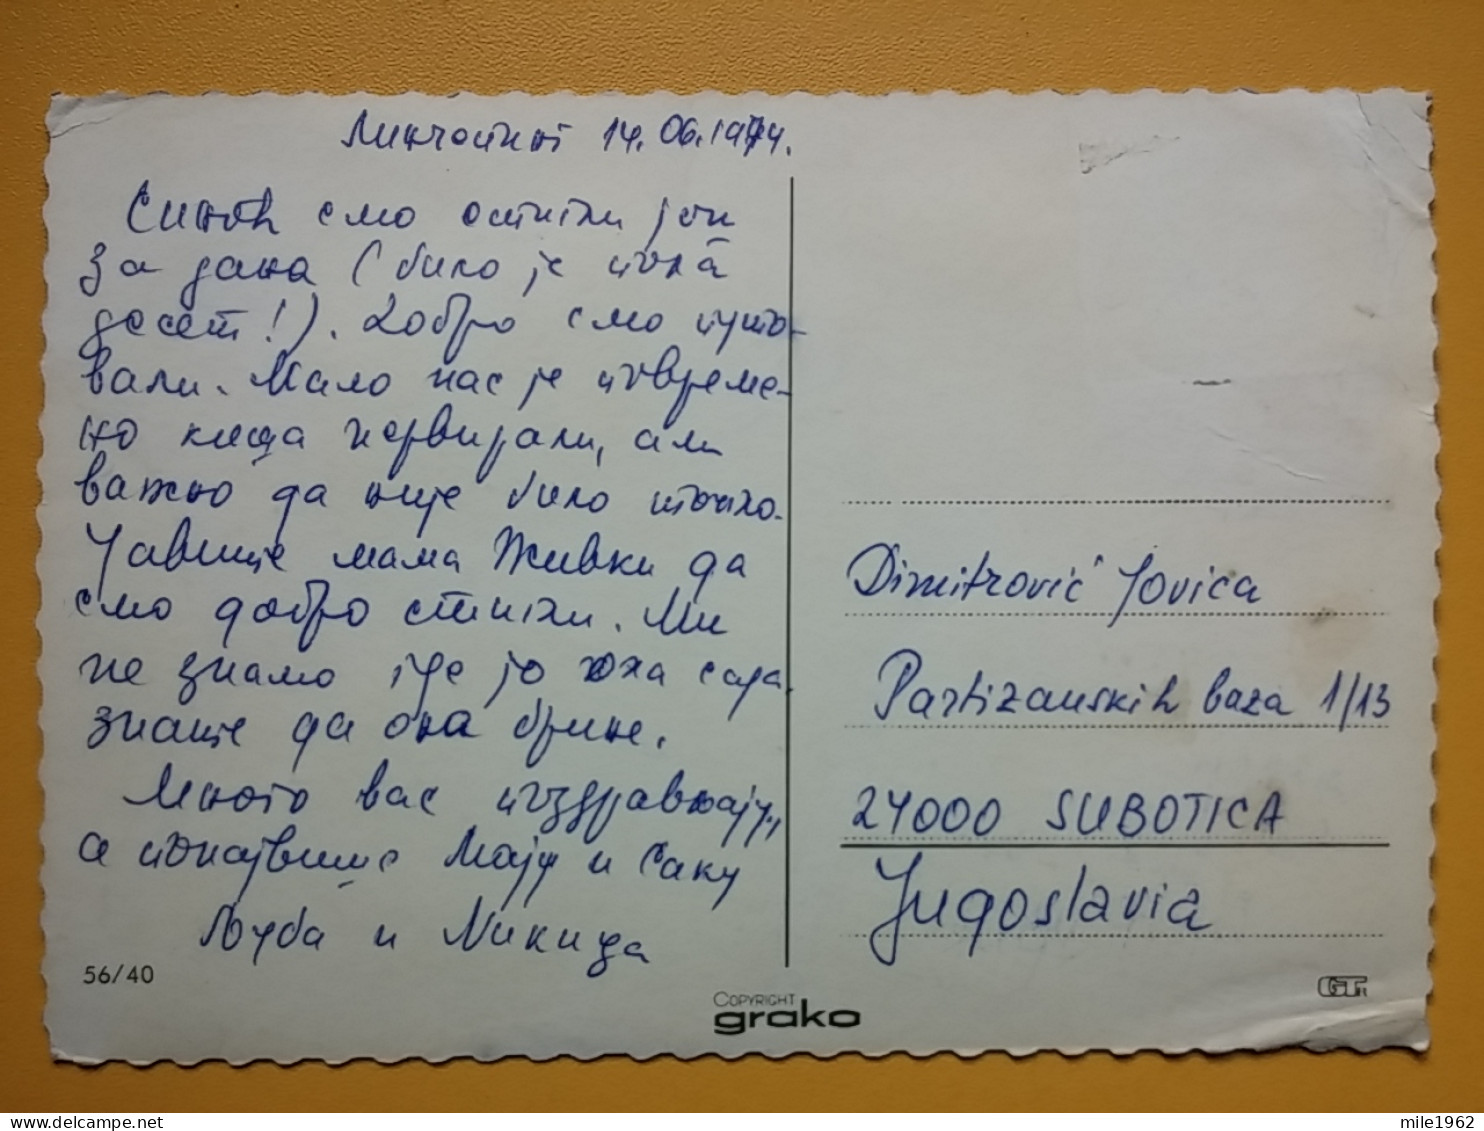 14.06.1974.
Синоћ смо стигли још
за дана (било је пола
десет!). Добро смо путо-
вали. Мало нас је повреме-
но киша нервирали, али
важно да није било
Јавите мама Живки да
смо добро стигли. Ми
не знамо где је она сада
знате да она брине.
Много вас поздрављају,
а понајвише Мају и Саку
Љуба и Никица
Dimitrović Jovica
Partizanskih baza 1/13
24000 SUBOTICA
Jugoslavia
56/40
COPYRIGHT
grako
mile1962